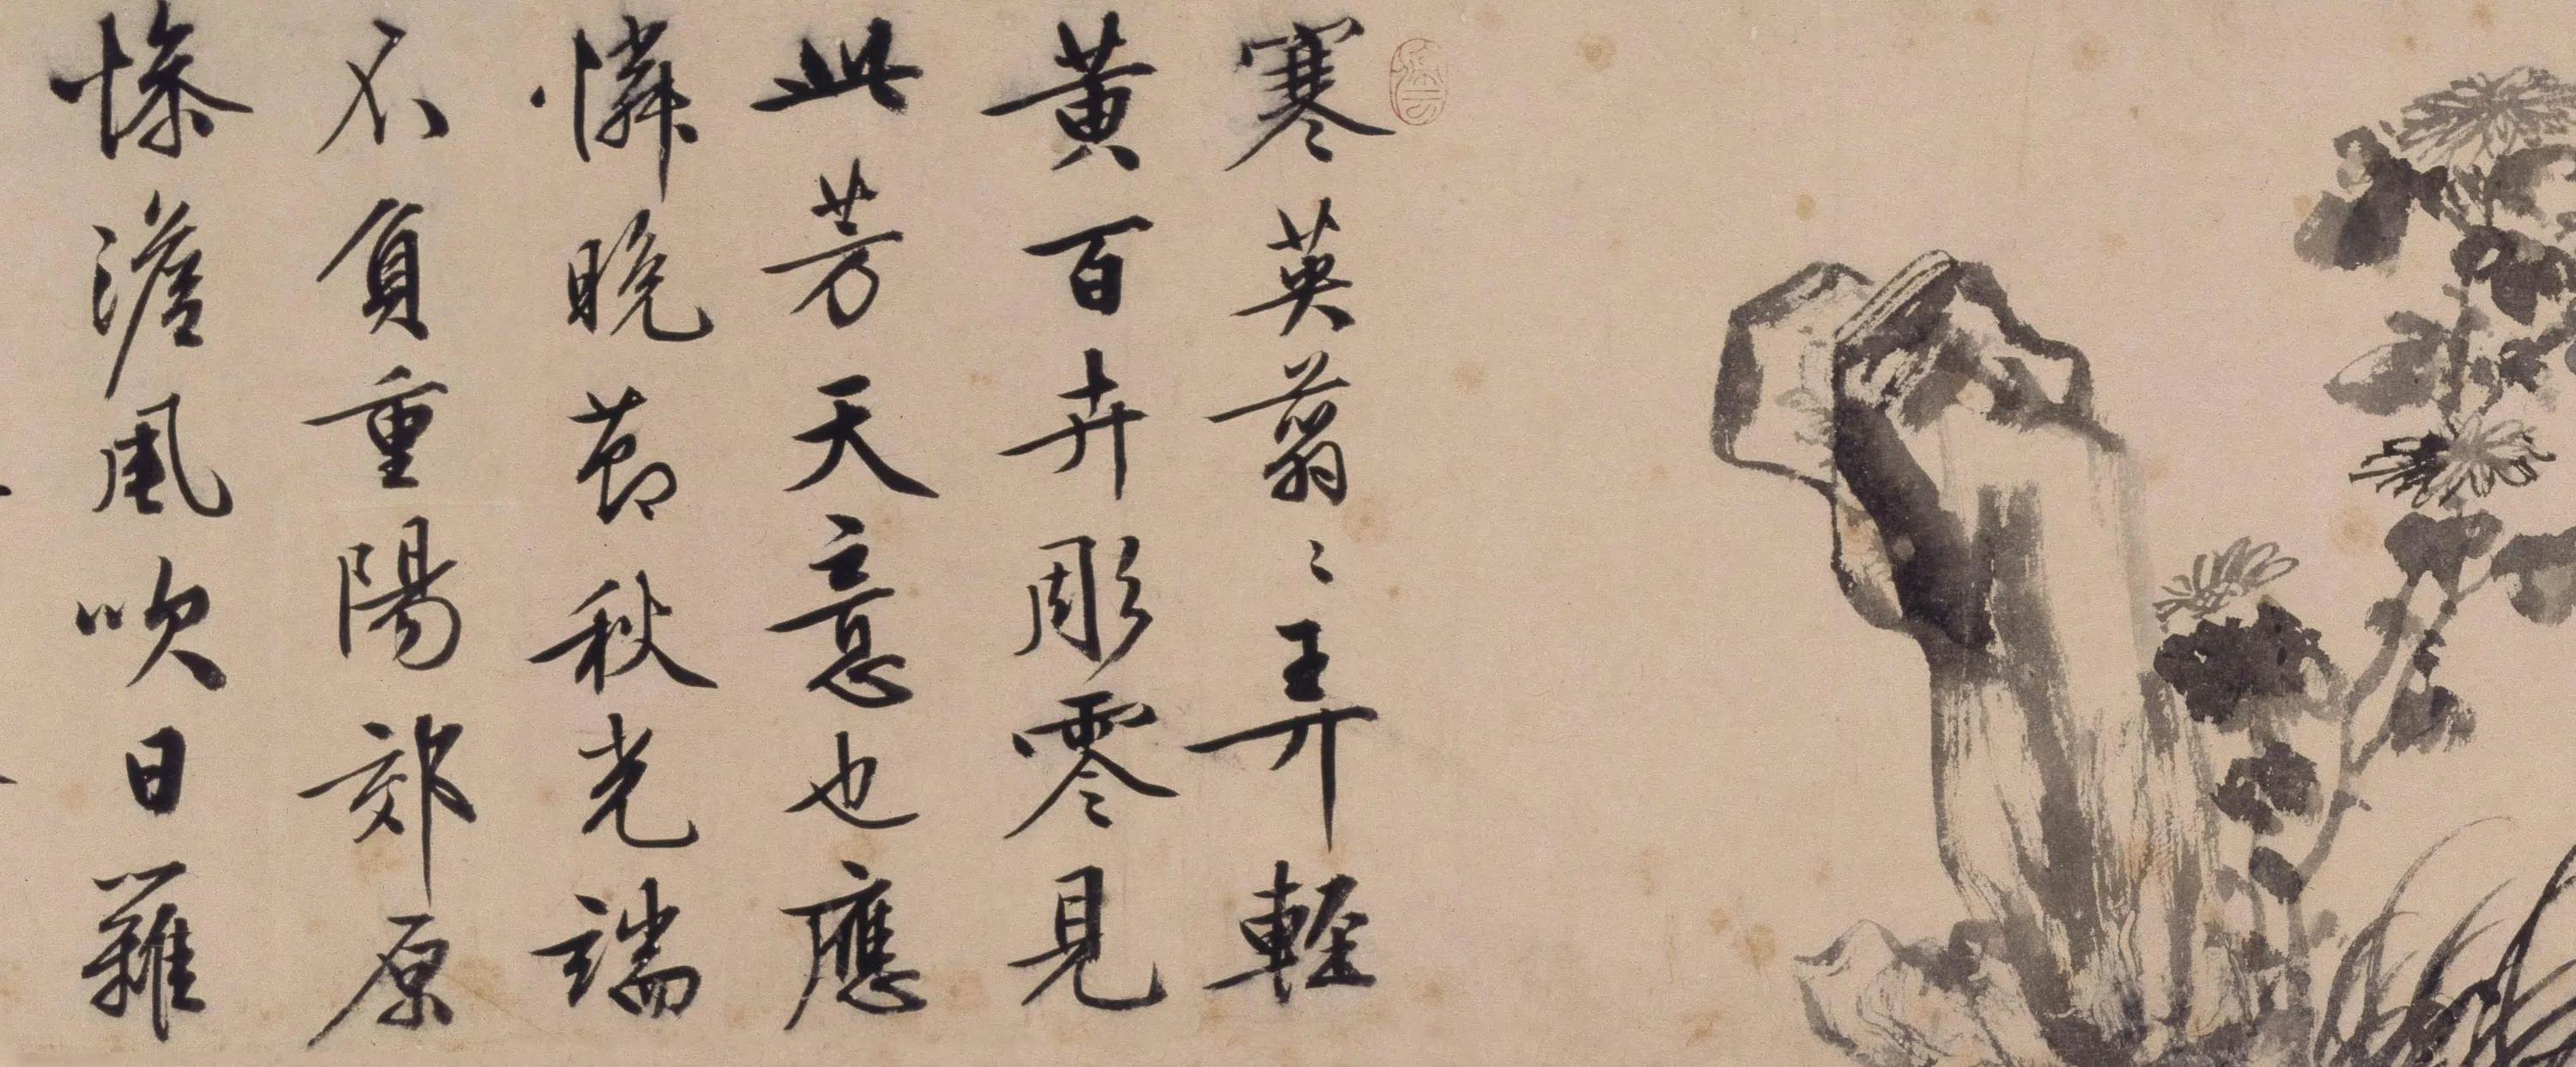 寒英翦〻弄輕
黃百卉彫零見
此芳天意也應
憐晚節秋光端
不負重陽郊原
慘澹風吹日籬